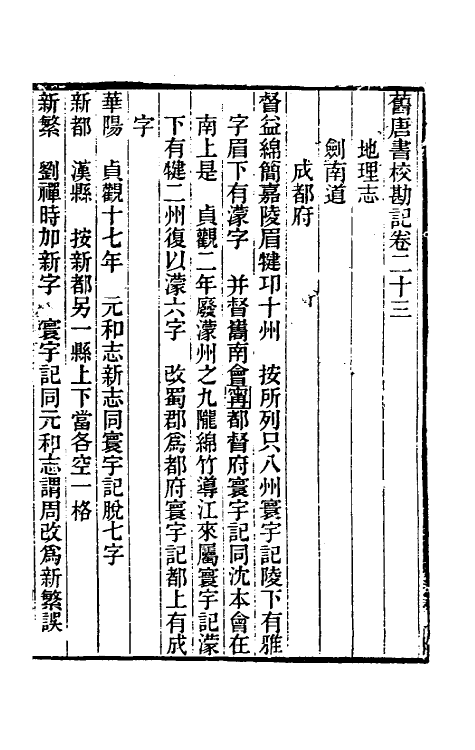 舊唐書校勘記卷二十三
地理志
劍南道
成都府
督益綿簡嘉陵眉犍邛十州　按所列只八州寰宇記陵下有雅
字眉下有濛字　并督嶲南會寧都督府寰宇記同沈本會在
南上是　貞觀二年廢濛州之九隴綿竹導江來屬寰宇記濛
下有犍二州復以濛六字　改蜀郡爲都府寰宇記都上有成
字
華陽　貞觀十七年　元和志新志同寰宇記脫七字
新都　漢縣　按新都另一縣上下當各空一格
新繁　劉禪時加新字　寰宇記同元和志謂周改爲新繁誤